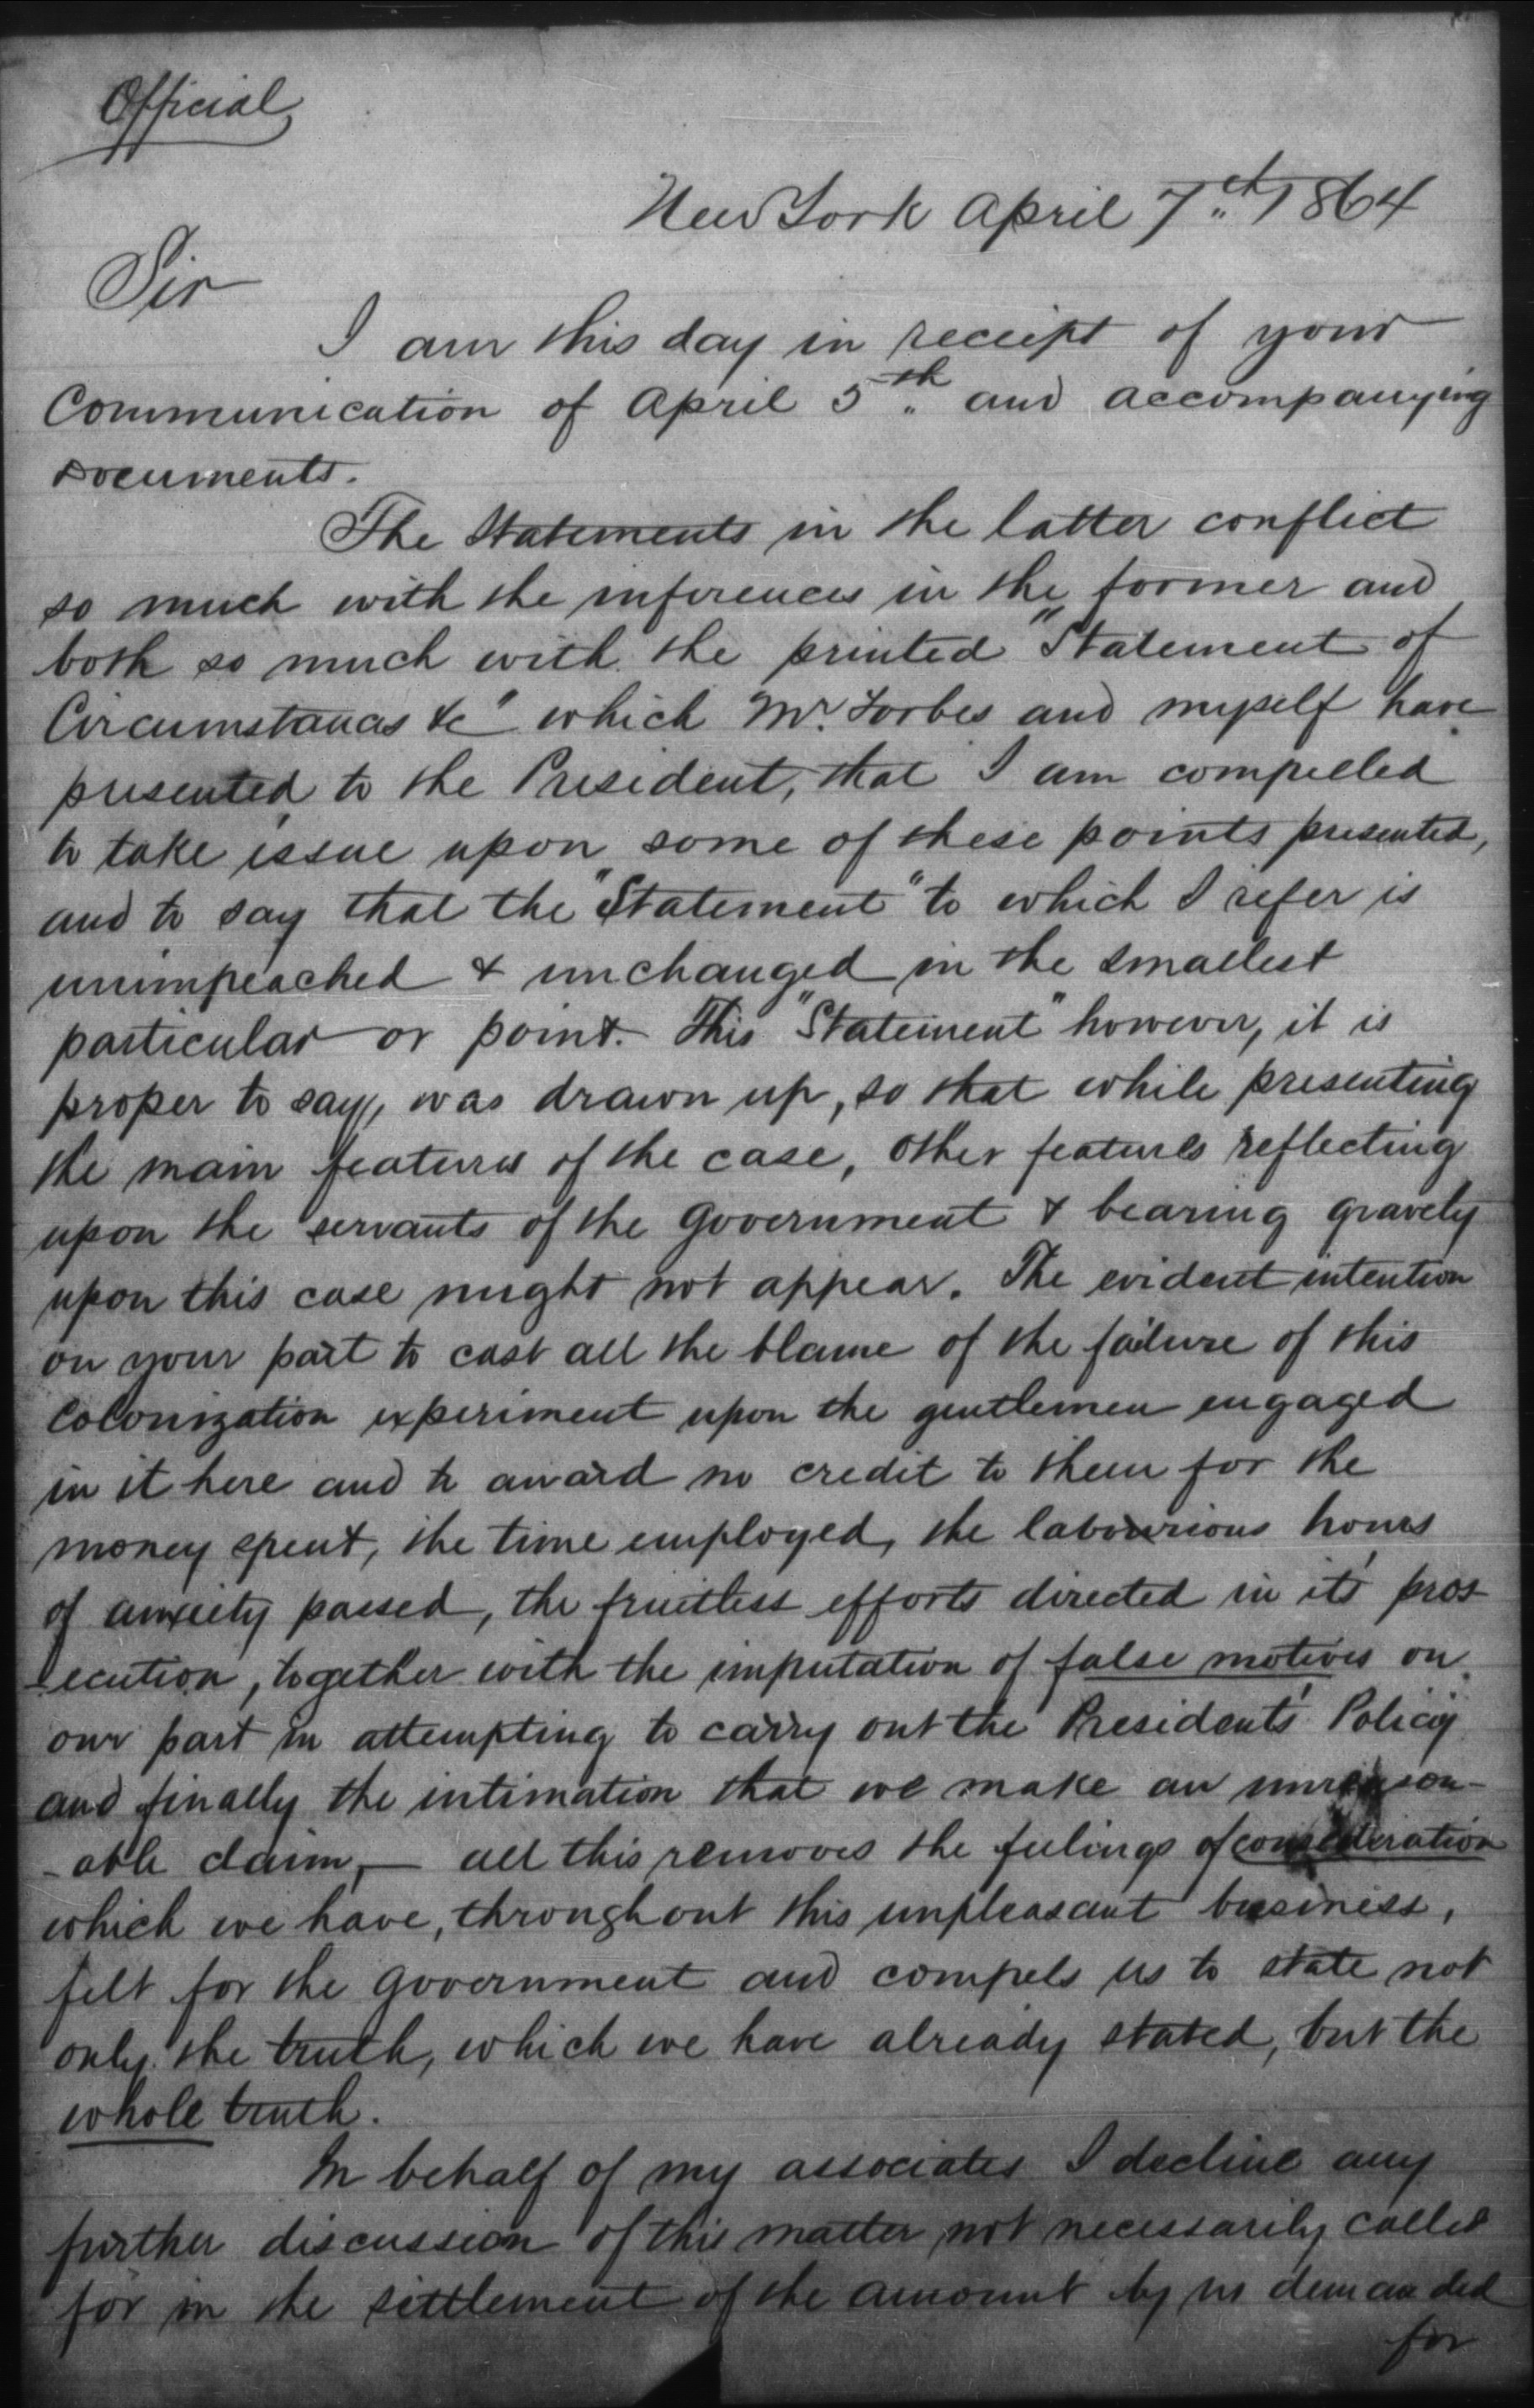 Official
New York April 7th 1864
Sir
I am this day in receipt of your
Communication of April 5th and accompanying
Documents.
The Statements in the latter conflict
so much with the inferences in the former and
both so much with the printed "Statement of
Circumstances &c" which Mr. Forbes and myself have
presented to the President, that I am compelled
to take issue upon some of these points presented,
and to say that the "Statement" to which I refer is
unimpeached & unchanged in the smallest
particular or point. This "Statement" however, it is
proper to say, was drawn up, so that while presenting
the main features of the case, other features reflecting
upon the servants of the Government & bearing gravely
upon this case might not appear. The evident intention
on your part to cast all the blame of the failure of this
Colonization experiment upon the gentlemen engaged
in it here and to award no credit to them for the
money spent, the time employed, the labourious hours
of anxiety passed, the fruitless efforts directed in it's pros-
ecution, together with the imputation of false motives on
our part in attempting to carry out the President's Policy
and finally the intimation that we make an unreason-
-able claim, — all this removes the feelings of consideration
which we have, throughout this unpleasant business,
felt for the Government and compels us to state not
only the truth, which we have already stated, but the
whole truth.
In behalf of my associates I decline any
further discussion of this matter not necessarily called
for in the settlement of the amount by us demanded
for